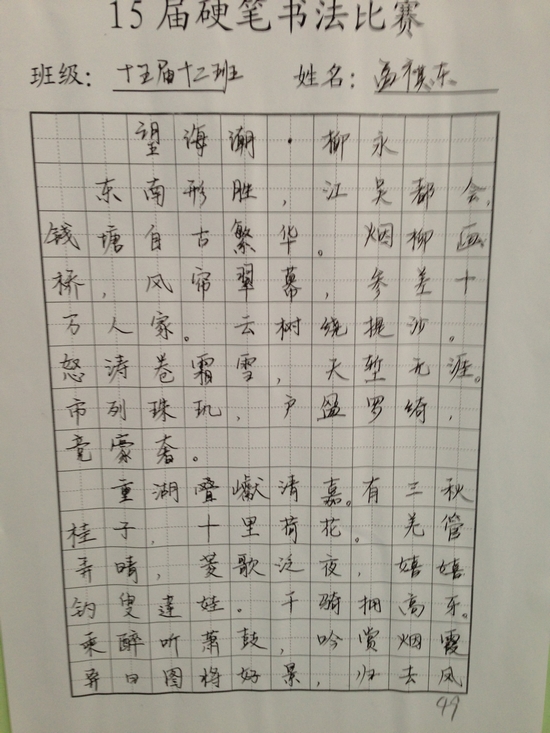 15届硬笔书法比赛
班级：十五届十二班 姓名：孟祺东
望海潮·柳永
东南形胜，江吴都会，
钱塘自古繁华。烟柳画
桥，风帘翠幕，参差十
万人家。云树绕堤沙。
怒涛卷霜雪，天堑无涯。
市列珠玑，户盈罗绮，
竞豪奢。
重湖叠巘清嘉。有三秋
桂子，十里荷花。羌管
弄晴，菱歌泛夜，嬉嬉
钓叟莲娃。千骑拥高牙。
乘醉听萧鼓，吟赏烟霞
异日图将好景，归去风
49